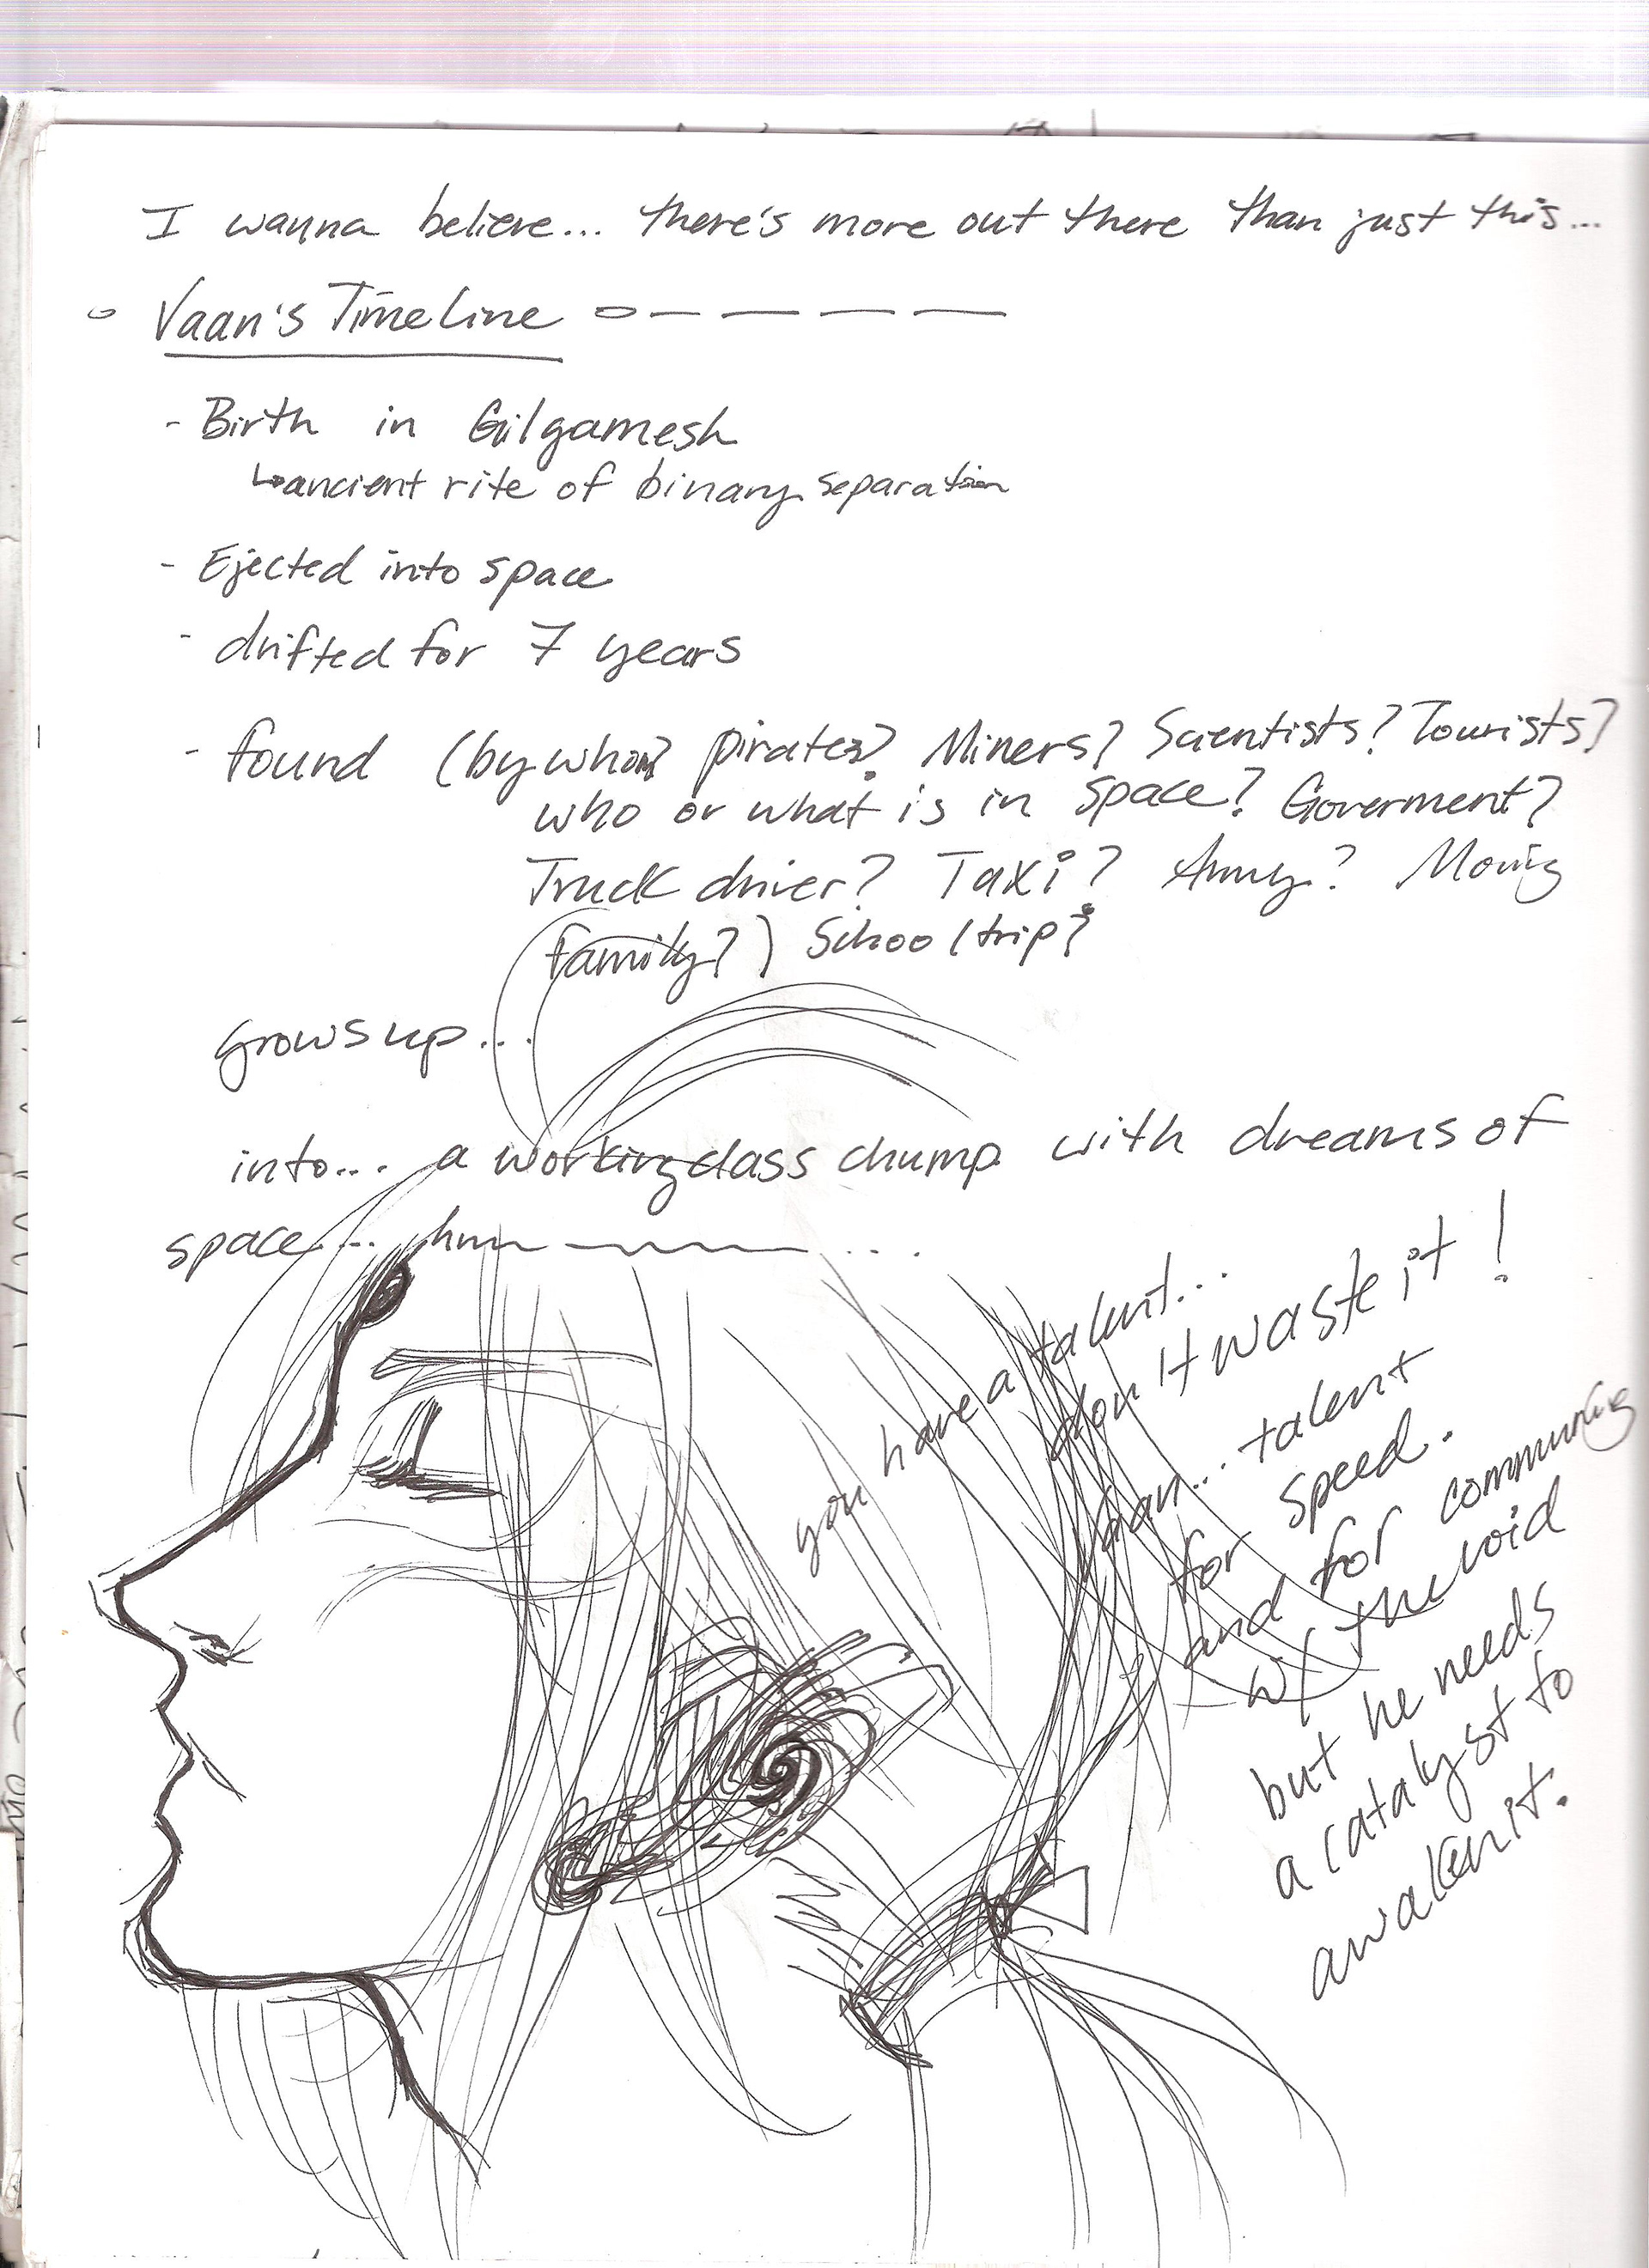 I wanna believe... there's more out there than just this...
Vaan's TimeLine
- Birth in Gilgamesh
ancient rite of binary separation
- Ejected into space
- drifted for 7 years
- found (by whom? pirates? Miners? Scientists? Tourists?
who or what is in space? Goverment?
Truck driver? Taxi? Army? Moving
family?) School trip?
grows up...
into... a working class chump with dreams of
space... hmm ....
you have a talent...
don't waste it!
Vaan... talent
for speed.
and for communing
w/ the void
but he needs
a catalyst to
awaken it.